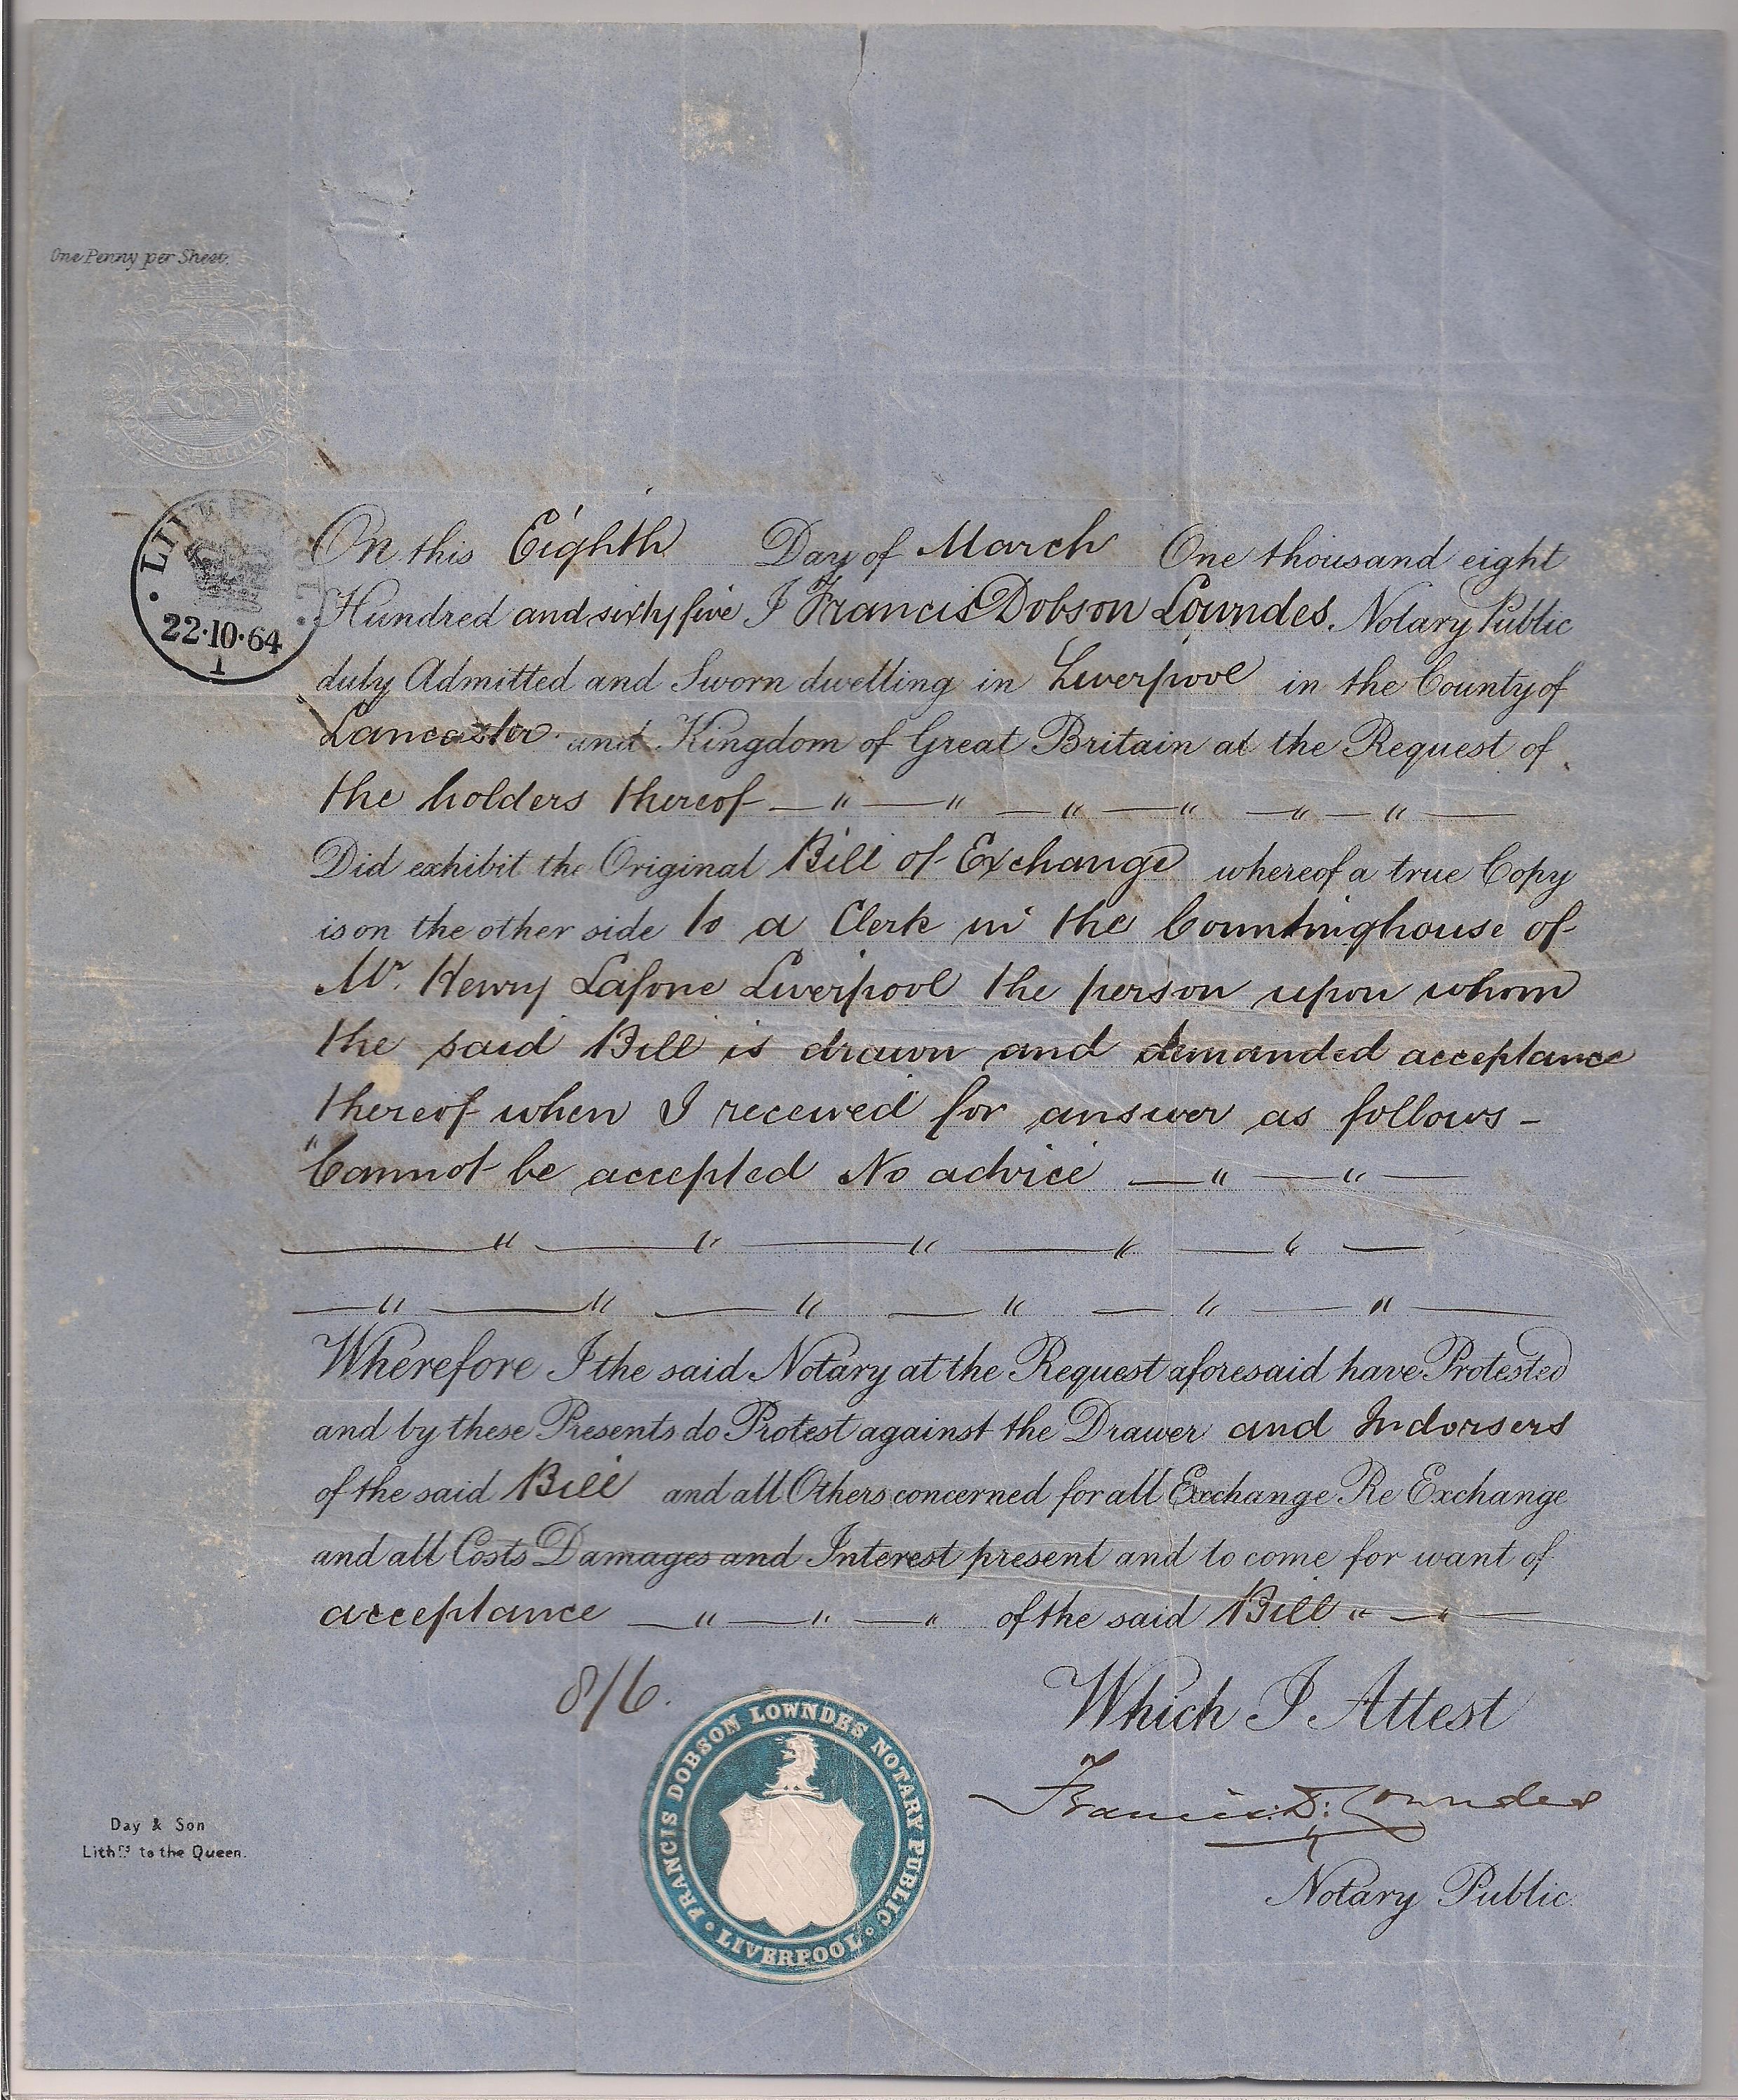 One Penny per Sheet.
ONE SHILLING
LIVERPOOL
22·10·64
1
On this Eighth Day of March One thousand eight
Hundred and sixty five I Francis Dobson Lowndes. Notary Public
duly Admitted and Sworn dwelling in Liverpool in the County of
Lancaster and Kingdom of Great Britain at the Request of
the holders thereof — " — " — " — " — " — " —
Did exhibit the Original Bill of Exchange whereof a true Copy
is on the other side to a Clerk in the Countinghouse of
Mr. Henry Lafone Liverpool the person upon whom
the said Bill is drawn and demanded acceptance
thereof when I received for answer as follows —
"Cannot be accepted No advice — " — " —
— " — " — " — " — " —
— " — " — " — " — " — " —
Wherefore I the said Notary at the Request aforesaid have Protested
and by these Presents do Protest against the Drawer and Indorsers
of the said Bill and all Others concerned for all Exchange Re Exchange
and all Costs Damages and Interest present and to come for want of
acceptance — " — " — " of the said Bill " — " —
8/6.
Which I Attest
Francis D: Lowndes
Notary Public.
FRANCIS DOBSON LOWNDES NOTARY PUBLIC
LIVERPOOL
Day & Son
Lithrs to the Queen.